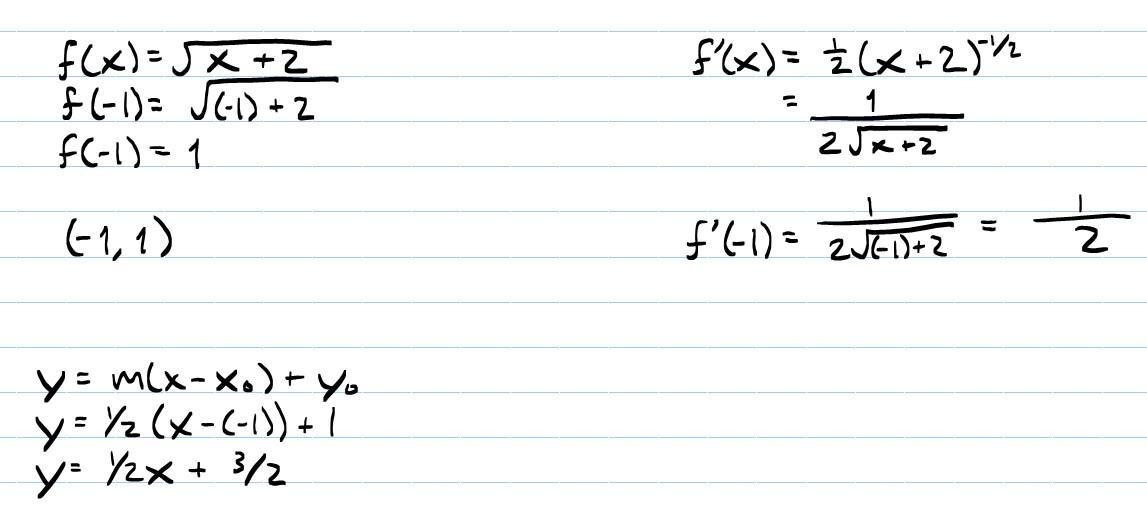 f(x) = √(x + 2)
f(-1) = √((-1) + 2)
f(-1) = 1
(-1, 1)
f'(x) = ½ (x + 2)^-1/2
= 1 / 2√(x + 2)
f'(-1) = 1 / 2√((-1) + 2) = 1 / 2
y = m(x - x₀) + y₀
y = 1/2 (x - (-1)) + 1
y = 1/2x + 3/2